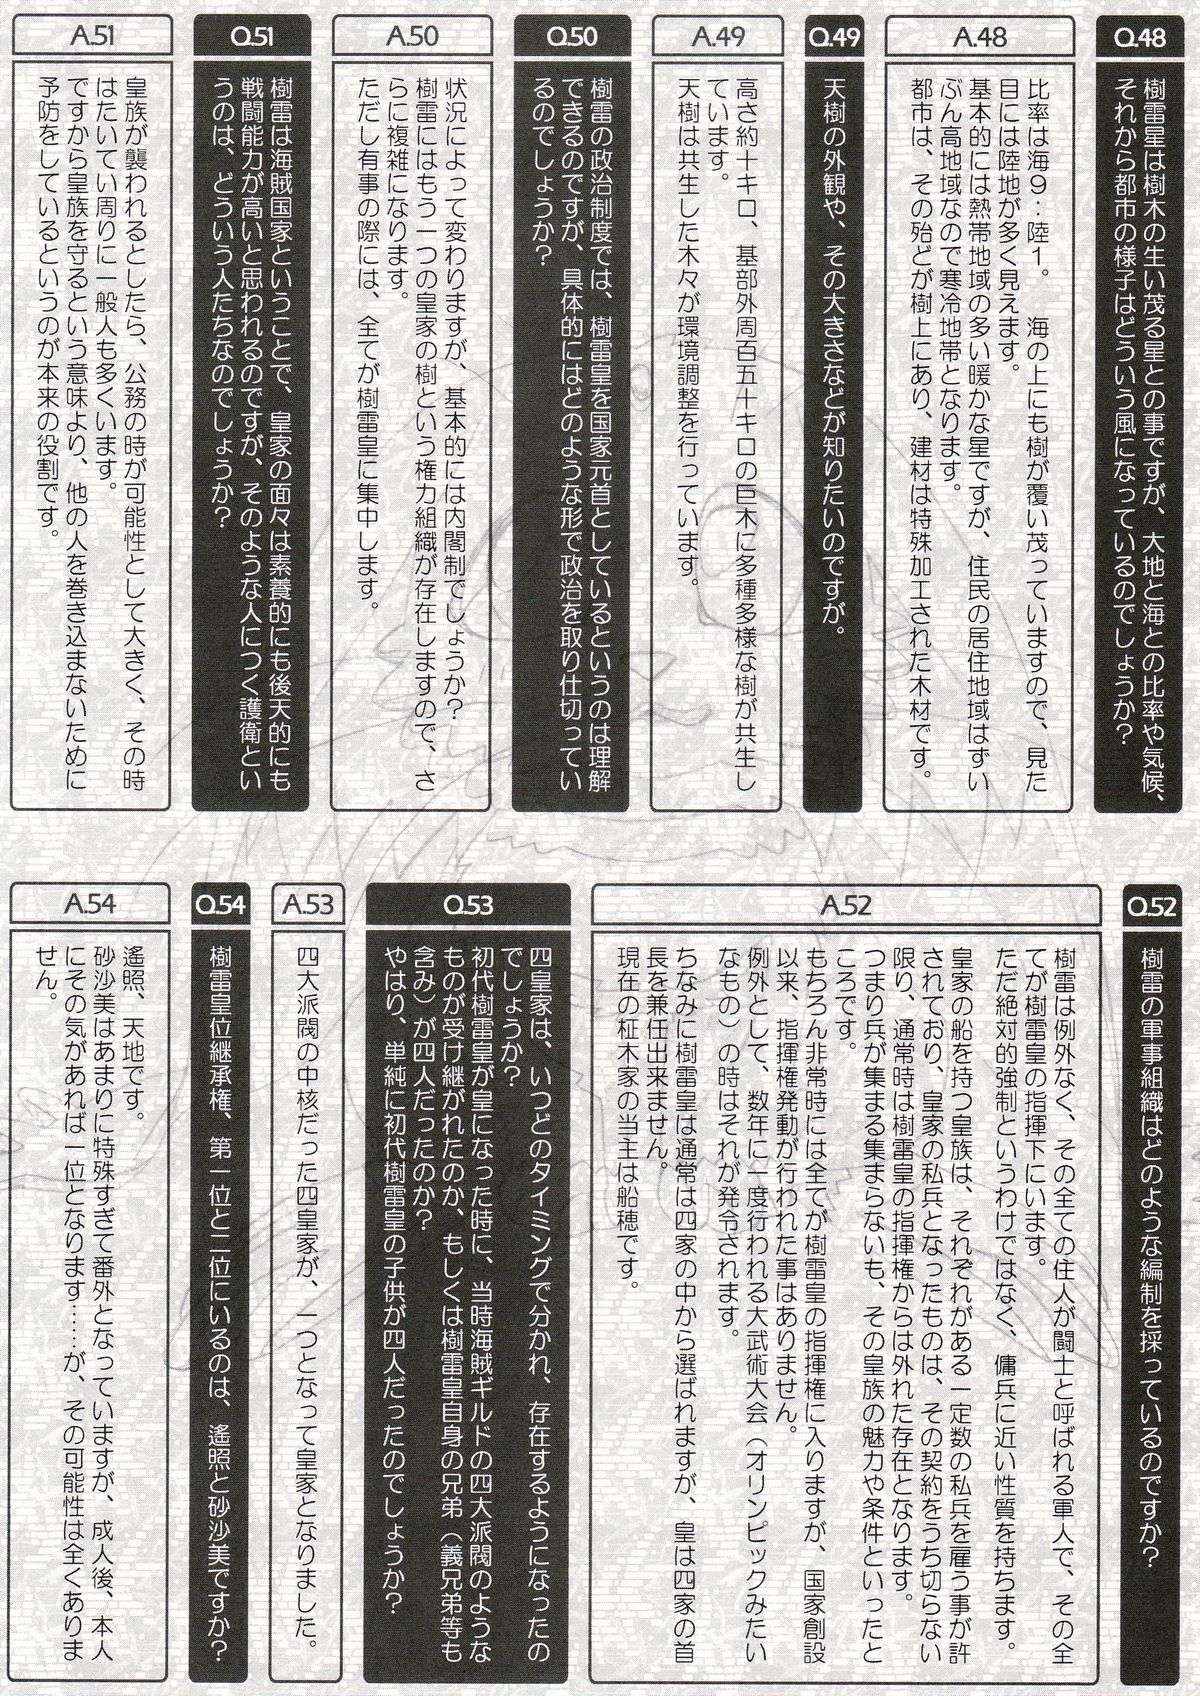 Q.48
樹雷星は樹木の生い茂る星との事ですが、大地と海との比率や気候、
それから都市の様子はどういう風になっているのでしょうか?
A.48
比率は海9:陸1。 海の上にも樹が覆い茂っていますので、見た
目には陸地が多く見えます。
基本的には熱帯地域の多い暖かな星ですが、住民の居住地域はずい
ぶん高地域なので寒冷地帯となります。
都市は、その殆どが樹上にあり、建材は特殊加工された木材です。
Q.49
天樹の外観や、その大きさなどが知りたいのですが。
A.49
高さ約十キロ、基部外周百五十キロの巨木に多種多様な樹が共生し
ています。
天樹は共生した木々が環境調整を行っています。
Q.50
樹雷の政治制度では、樹雷皇を国家元首としているというのは理解
できるのですが、具体的にはどのような形で政治を取り仕切ってい
るのでしょうか?
A.50
状況によって変わりますが、基本的には内閣制でしょうか?
樹雷にはもう一つの皇家の樹という権力組織が存在しますので、さ
らに複雑になります。
ただし有事の際には、全てが樹雷皇に集中します。
Q.51
樹雷は海賊国家ということで、皇家の面々は素養的にも後天的にも
戦闘能力が高いと思われるのですが、そのような人につく護衛とい
うのは、どういう人たちなのでしょうか?
A.51
皇族が襲われるとしたら、公務の時が可能性として大きく、その時
はたいてい周りに一般人も多くいます。
ですから皇族を守るという意味より、他の人を巻き込まないために
予防をしているというのが本来の役割です。
Q.52
樹雷の軍事組織はどのような編制を採っているのですか?
A.52
樹雷は例外なく、その全ての住人が闘士と呼ばれる軍人で、その全
てが樹雷皇の指揮下にいます。
ただ絶対的強制というわけではなく、傭兵に近い性質を持ちます。
皇家の船を持つ皇族は、それぞれがある一定数の私兵を雇う事が許
されており、皇家の私兵となったものは、その契約をうち切らない
限り、通常時は樹雷皇の指揮権からは外れた存在となります。
つまり兵が集まる集まらないも、その皇族の魅力や条件といったと
ころです。
もちろん非常時には全てが樹雷皇の指揮権に入りますが、国家創設
以来、指揮権発動が行われた事はありません。
例外として、数年に一度行われる大武術大会(オリンピックみたい
なもの)の時はそれが発令されます。
ちなみに樹雷皇は通常は四家の中から選ばれますが、皇は四家の首
長を兼任出来ません。
現在の柾木家の当主は船穂です。
Q.53
四皇家は、いつどのタイミングで分かれ、存在するようになったの
でしょうか?
初代樹雷皇が皇になった時に、当時海賊ギルドの四大派閥のような
ものが受け継がれたのか、もしくは樹雷皇自身の兄弟(義兄弟等も
含み)が四人だったのか?
やはり、単純に初代樹雷皇の子供が四人だったのでしょうか?
A.53
四大派閥の中核だった四皇家が、一つとなって皇家となりました。
Q.54
樹雷皇位継承権、第一位と二位にいるのは、遙照と砂沙美ですか?
A.54
遙照、天地です。
砂沙美はあまりに特殊すぎて番外となっていますが、成人後、本人
にその気があれば一位となります……が、その可能性は全くありま
せん。